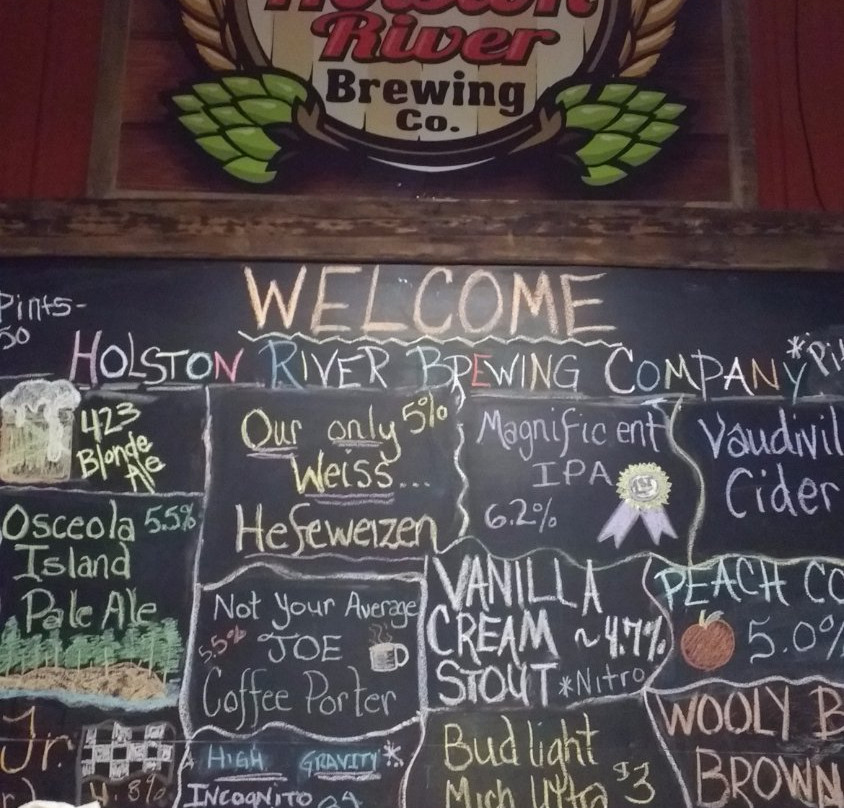 River
Brewing
Co.
WELCOME
Pints-
50
HOLSTON RIVER BREWING COMPANY
423
Blonde
Ale
Our only 5%
Weiss...
Hefeweizen
Magnificent
IPA
6.2%
Cider
Osceola 5.5%
Island
Pale Ale
Not Your Average
5.5% JOE
Coffee Porter
VANILLA
CREAM ~4.7%
STOUT *Nitro
PEACH
5.0%
Jr.
4.8%
HIGH GRAVITY*
INCOGNITO
Bud light
Mich Ultra $3
WOOLY B
BROWN